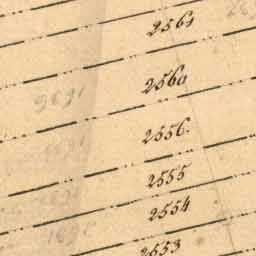 2561
2560
2556.
2555
2554
2553